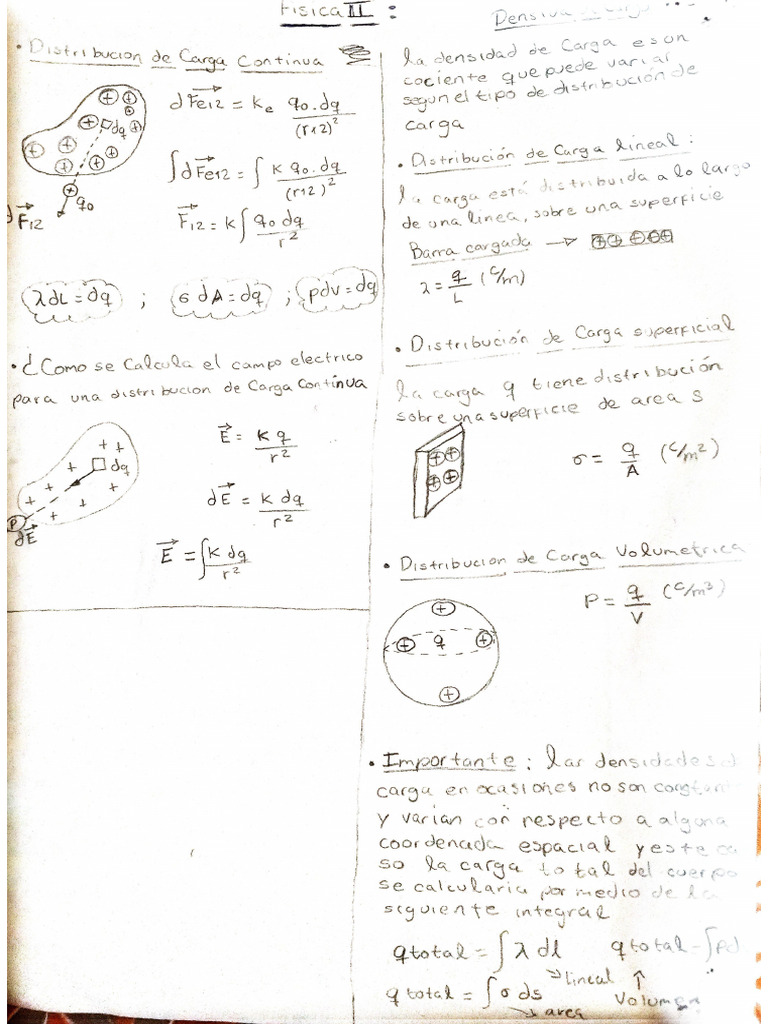 Fisica II :
• Distribucion de Carga Continua
dFe12 = Ke q0.dq/(r12)²
dq
∫dFe12 = ∫ K q0.dq/(r12)²
q0
dF12
F12 = K∫ q0 dq/r²
λdL = dq ; σ dA = dq ; ρdV = dq
• ¿Como se Calcula el campo electrico
para una distribucion de Carga Continua
E = K q/r²
dq
dE = K dq/r²
P
dE
E = ∫ K dq/r²
la densidad de Carga es un
cociente que puede variar
segun el tipo de distribución de
carga
• Distribución de Carga lineal :
la carga está distribuida a lo largo
de una linea, sobre una superficie
Barra cargada →
λ = q/L (C/m)
• Distribución de Carga superficial
la carga q tiene distribución
sobre una superficie de area S
σ = q/A (C/m²)
• Distribucion de Carga Volumetrica
ρ = q/V (C/m³)
q
• Importante : las densidades
carga en ocasiones no son constan
y varian con respecto a alguna
coordenada espacial y este ca
so la carga total del cuerpo
se calcularia por medio de la
siguiente integral
qtotal = ∫ λ dl qtotal = ∫ρd
→ lineal ↑
qtotal = ∫ σ ds Volumen
→ area